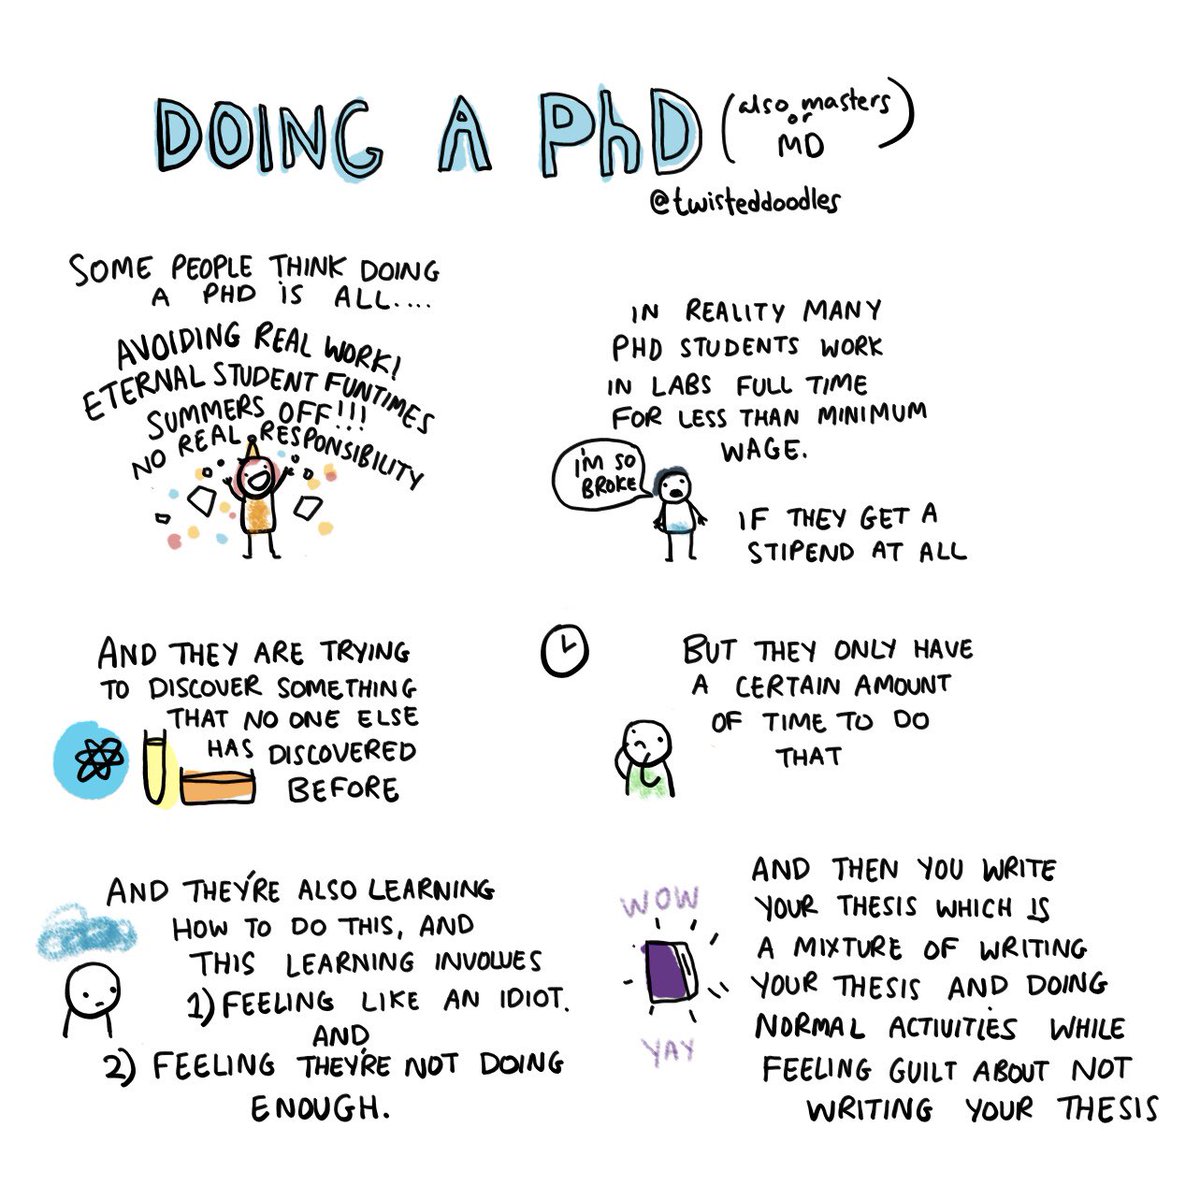 DOING A PhD (also masters
or
MD)
@twisteddoodles
SOME PEOPLE THINK DOING
A PHD IS ALL....
AVOIDING REAL WORK!
ETERNAL STUDENT FUNTIMES
SUMMERS OFF!!!
NO REAL RESPONSIBILITY
IN REALITY MANY
PHD STUDENTS WORK
IN LABS FULL TIME
FOR LESS THAN MINIMUM
WAGE.
I'M SO
BROKE
IF THEY GET A
STIPEND AT ALL
AND THEY ARE TRYING
TO DISCOVER SOMETHING
THAT NO ONE ELSE
HAS DISCOVERED
BEFORE
BUT THEY ONLY HAVE
A CERTAIN AMOUNT
OF TIME TO DO
THAT
AND THEY'RE ALSO LEARNING
HOW TO DO THIS, AND
THIS LEARNING INVOLVES
1) FEELING LIKE AN IDIOT.
AND
2) FEELING THEY'RE NOT DOING
ENOUGH.
WOW
YAY
AND THEN YOU WRITE
YOUR THESIS WHICH IS
A MIXTURE OF WRITING
YOUR THESIS AND DOING
NORMAL ACTIVITIES WHILE
FEELING GUILT ABOUT NOT
WRITING YOUR THESIS